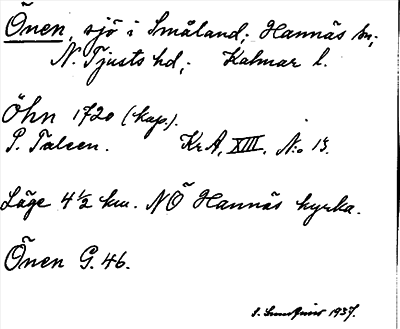 Önen, sjö i Småland; Hannäs sn;
N. Tjusts hd; Kalmar l.
Öhn 1720 (kop.).
P. Talcen. Kr A, XIII, N:o 13.
Läge 4 ½ km. NÖ Hannäs kyrka.
Önen G. 46.
1937.